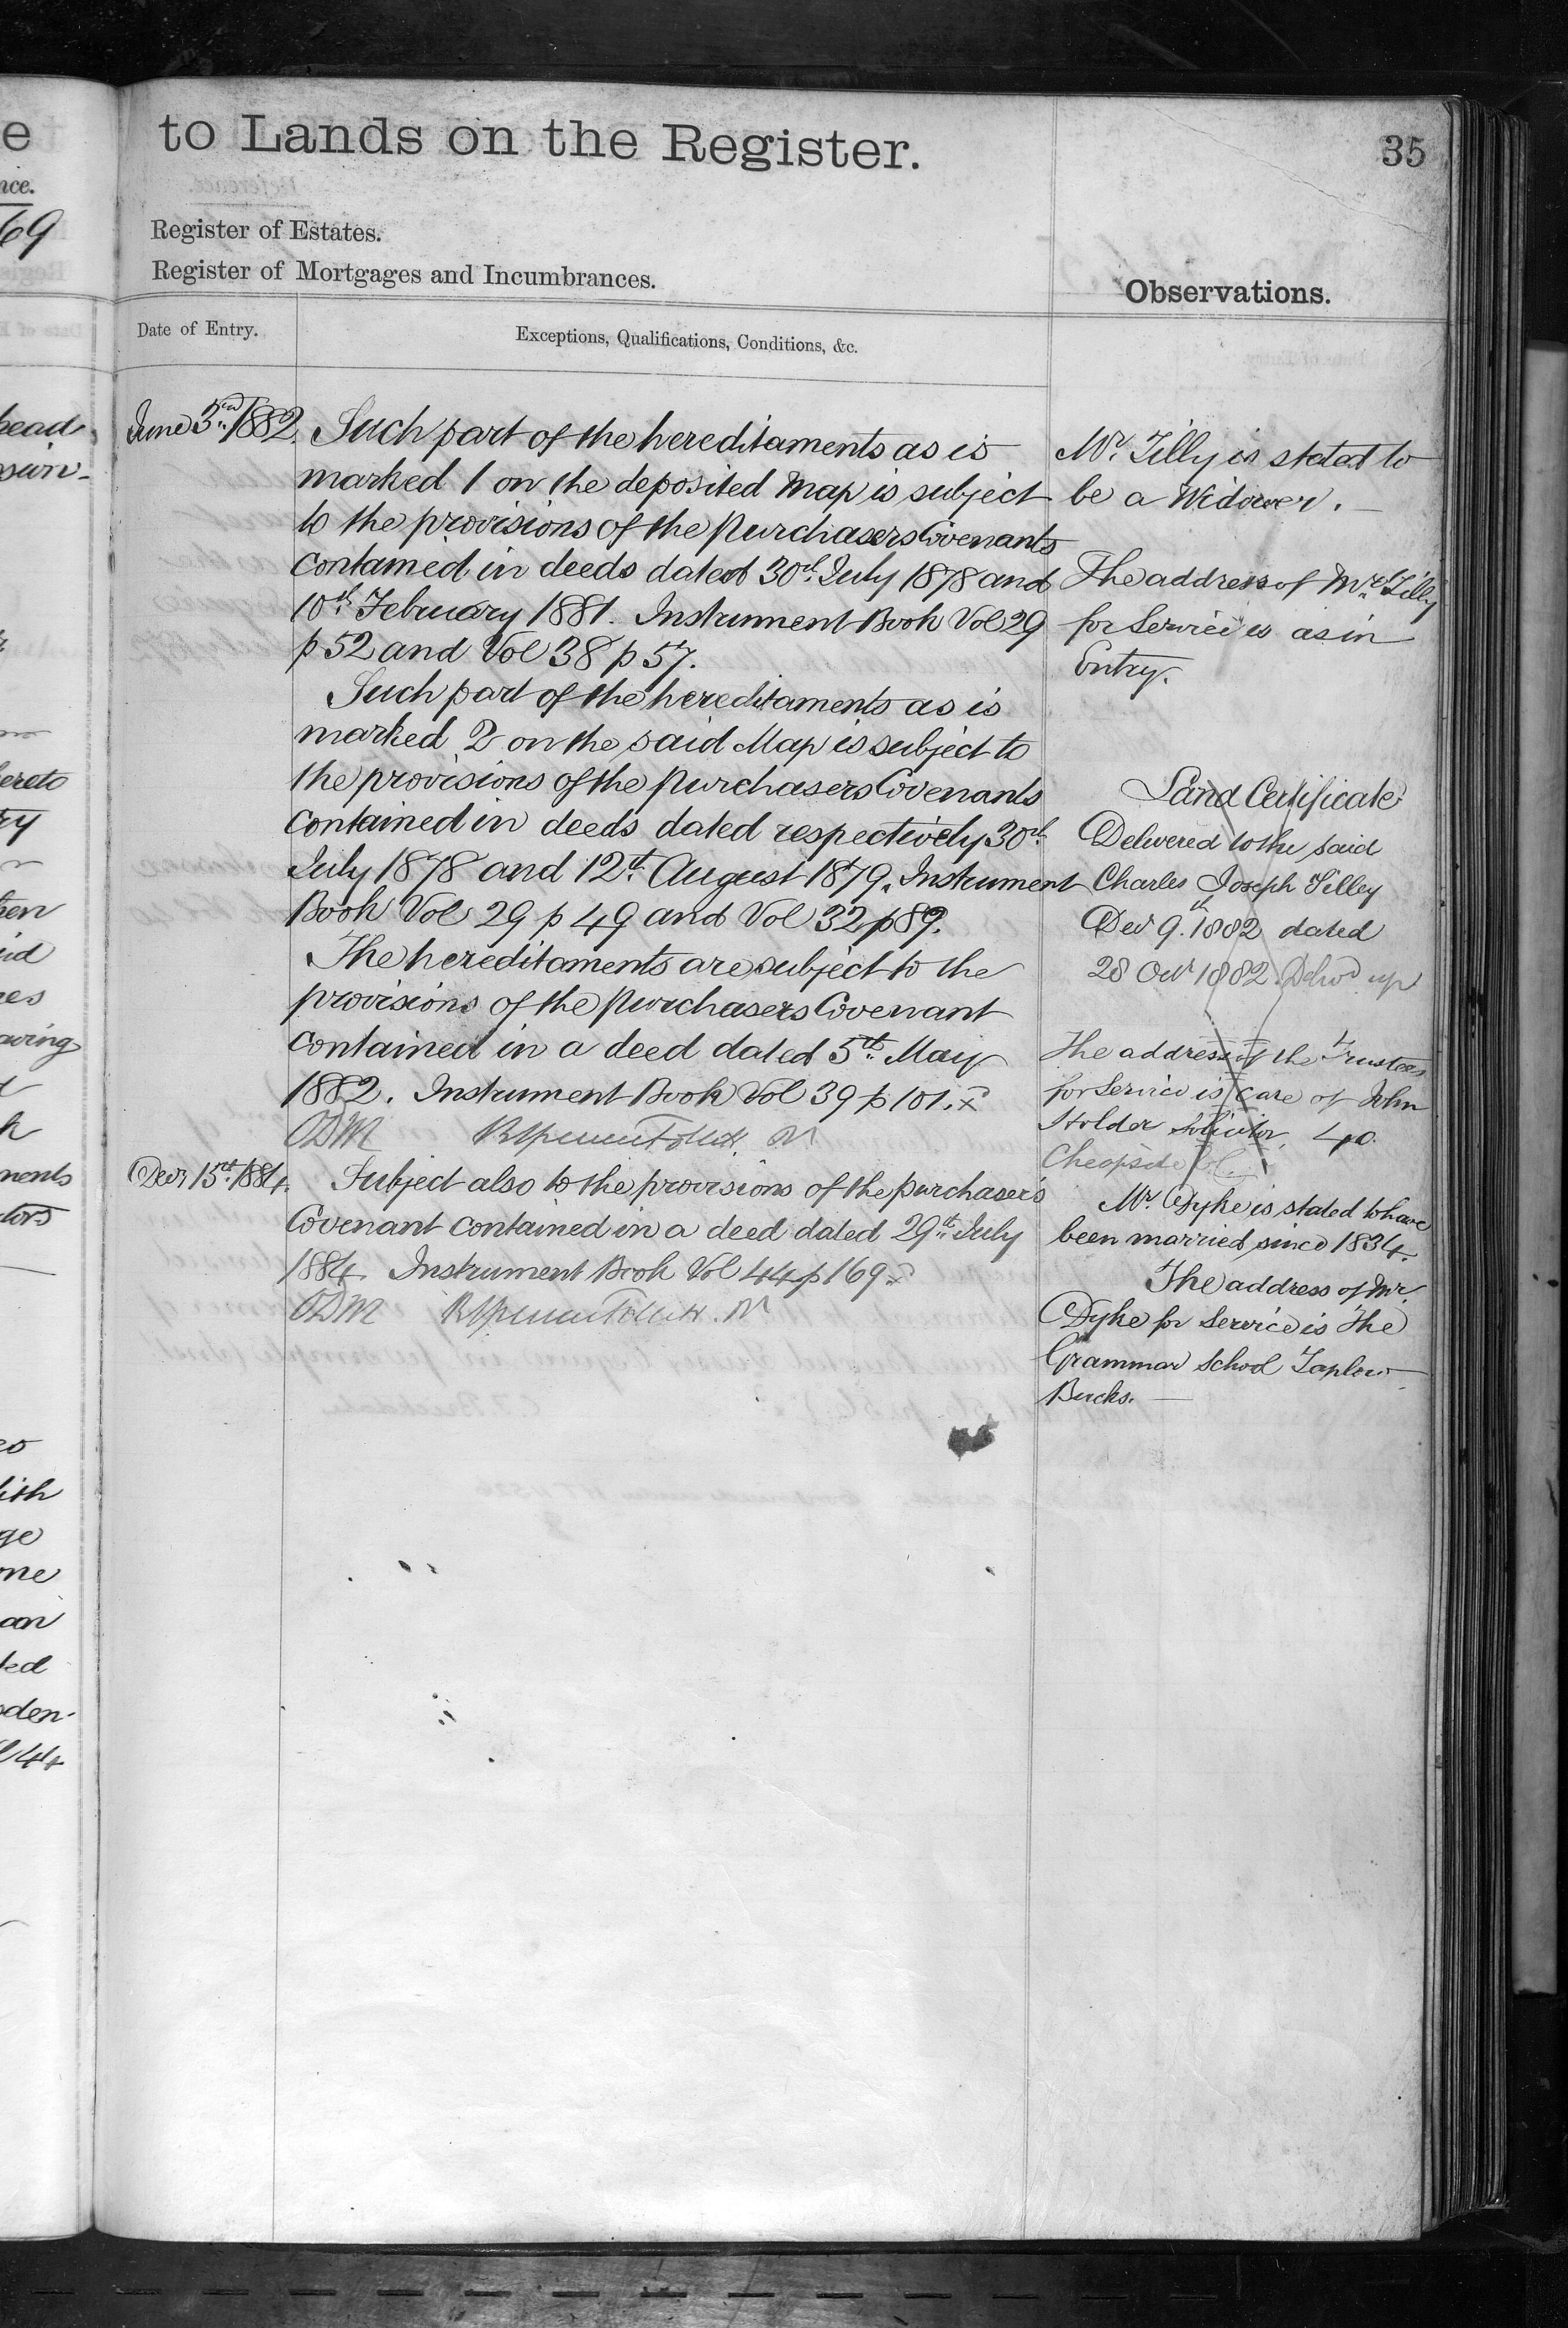 to Lands on the Register.
35
Register of Estates.
Register of Mortgages and Incumbrances.
Observations.
Date of Entry.
Exceptions, Qualifications, Conditions, &c.
June 3rd 1882.
Such part of the hereditaments as is
marked 1 on the deposited Map is subject
to the provisions of the purchasers Covenants
contained in deeds dated 30th July 1878 and
10th February 1881. Instrument Book Vol 29
p 52 and Vol 38 p 57.
Such part of the hereditaments as is
marked 2 on the said Map is subject to
the provisions of the purchasers Covenants
contained in deeds dated respectively 30th
July 1878 and 12th August 1879. Instrument
Book Vol 29 p 49 and Vol 32 p 89.
The hereditaments are subject to the
provisions of the purchasers Covenant
contained in a deed dated 5th May
1882. Instrument Book Vol 39 p 101. x
ODM
Decr 15th 1884.
Subject also to the provisions of the purchaser's
Covenant contained in a deed dated 29th July
1884. Instrument Book Vol 44 p 169 x
ODM
Mr. Tilly is stated to
be a Widower. —
The address of Mr. Tilly
for Service is as in
Entry.
Land Certificate
Delivered to the said
Charles Joseph Tilley
Decr 9th 1882 dated
28 Octr 1882. Delivd up
The address of the Trustees
for Service is care of John
Holder Solicitor, 40
Cheapside
Mr. Dyke is stated to have
been married since 1834.
The address of Mr.
Dyke for Service is The
Grammar School Taplow
Bucks. —
e
nce.
69
hereto
ry
aving
ments
tors
ith
ge
one
an
ted
den-
44